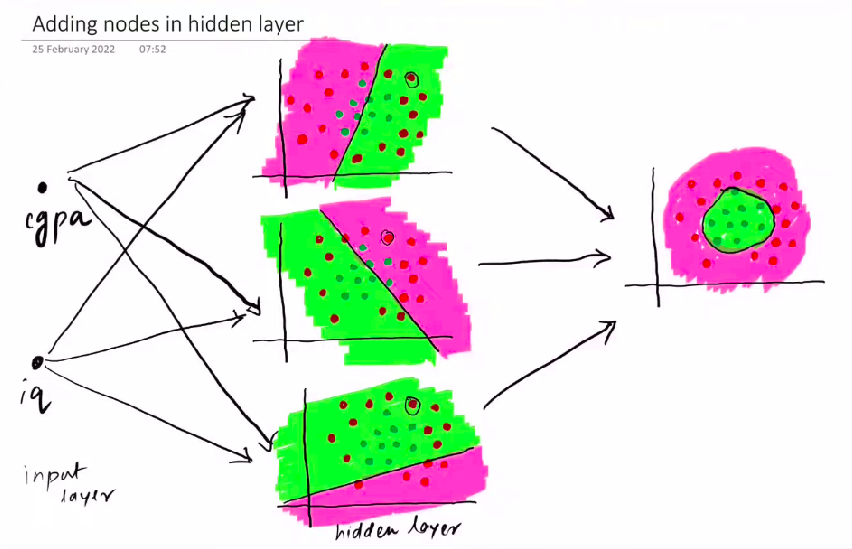 Adding nodes in hidden layer
25 February 2022 07:52
cgpa
iq
input
layer
hidden layer